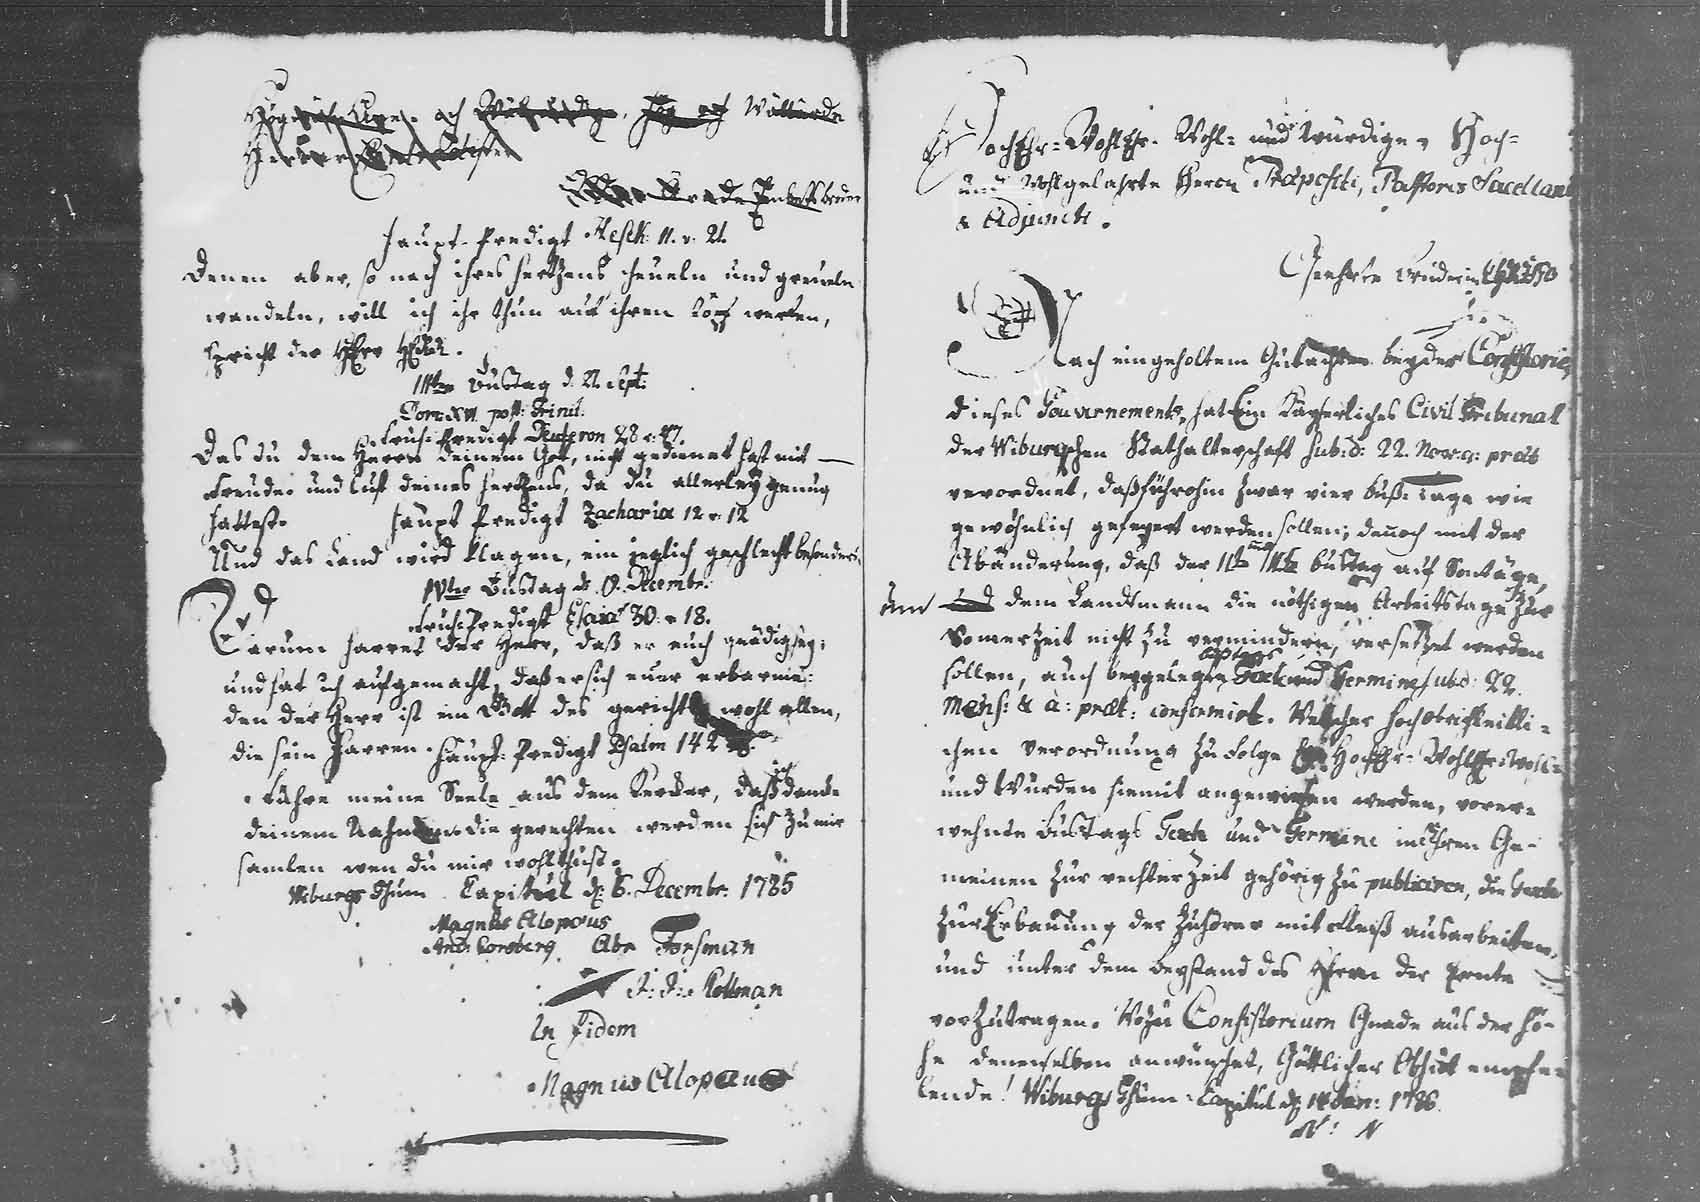 Haupt-Predigt Hesek: 11. v. 21.
Denen aber, so nach ihres hertzens scheueln und greueln
wandeln, will ich ihr thun auf ihren Kopf werfen,
spricht der HErr HErr.
IIIter Bustag d. 21 Sept:
Dom: XVI post: Trinit:
Früh: Predigt Deuteron 28 v: 47.
Das du dem Herrn deinem Gott, nicht gedienet hast mit
Freude und lust deines hertzens, da du allerley genug
hattest. Haupt Predigt Zachariæ 12 v. 12
Und das Land wird klagen, ein jeglich geschlecht besonders.
IVter Bustag d. 9. Decembr:
Früh: Predigt Esaiæ 30. v. 18.
Darum harret der Herr, daß er euch gnädig sey;
und hat sich aufgemacht, daß er sich euer erbarme:
den der Herr ist ein Gott des gerichts wohl allen,
die sein harren. Haupt: Predigt Psalm 142
Führe meine Seele aus dem Kercker, daß ich dancke
deinem Nahmen die gerechten werden sich zu mir
samlen wen du mir wohlthust.
Wiburgs Thum Capitul d: 6. Decembr: 1785
Magnus Alopæus
And: Forsberg Abr Forsman
Kellman
In fidem
Magnus Alopæus
HochEhr- WohlEhr- Wohl- und Würdige, Hoch-
und Wohlgelahrte Herrn Præpositi, Pastores Sacellani
& Adjuncti.
Geehrte Brüder in Christo
Nach eingeholtem Gutachten beyder Consistorien,
dieses Gouvernements, hat Ein Kayserliches Civil Tribunal
der Wiburgschen Stathalterschaft sub: d: 22. Nov: a: præt
verordnet, daß führohin zwar vier Buß-Tage wie
gewöhnlich gefeyert werden sollen; dennoch mit der
Abänderung, daß der IIte und IIIte Bustag auf Sontäge,
um dem Landtmann die nöthigen Arbeitstage zur
Somerzeit nicht zu vermindern, versetzet werden
sollen, auch beygelegte bustags Texte und Termine sub d: 22.
Mens: & a: præt: confirmiret. Welcher hochobrigkeitli-
chen verordnung zu folge HochEhr- WohlEhr- Wohl-
und Würden hiemit angewiesen werden, vorer-
wehnte Bustags Texte und Termine in Ihren Ge-
meinen zur rechter Zeit gehörig zu publiciren, die Texte
zur Erbauung der Zuhörer mit Fleiß ausarbeiten,
und unter dem beystand des Herrn der Ernte
vorzutragen. Wozu Consistorium Gnade aus der Hö-
he denenselben anwünschet, Göttlicher Obhut empfe-
lende! Wiburgs Thum-Capitul d: 14 Jan: 1786
N: N